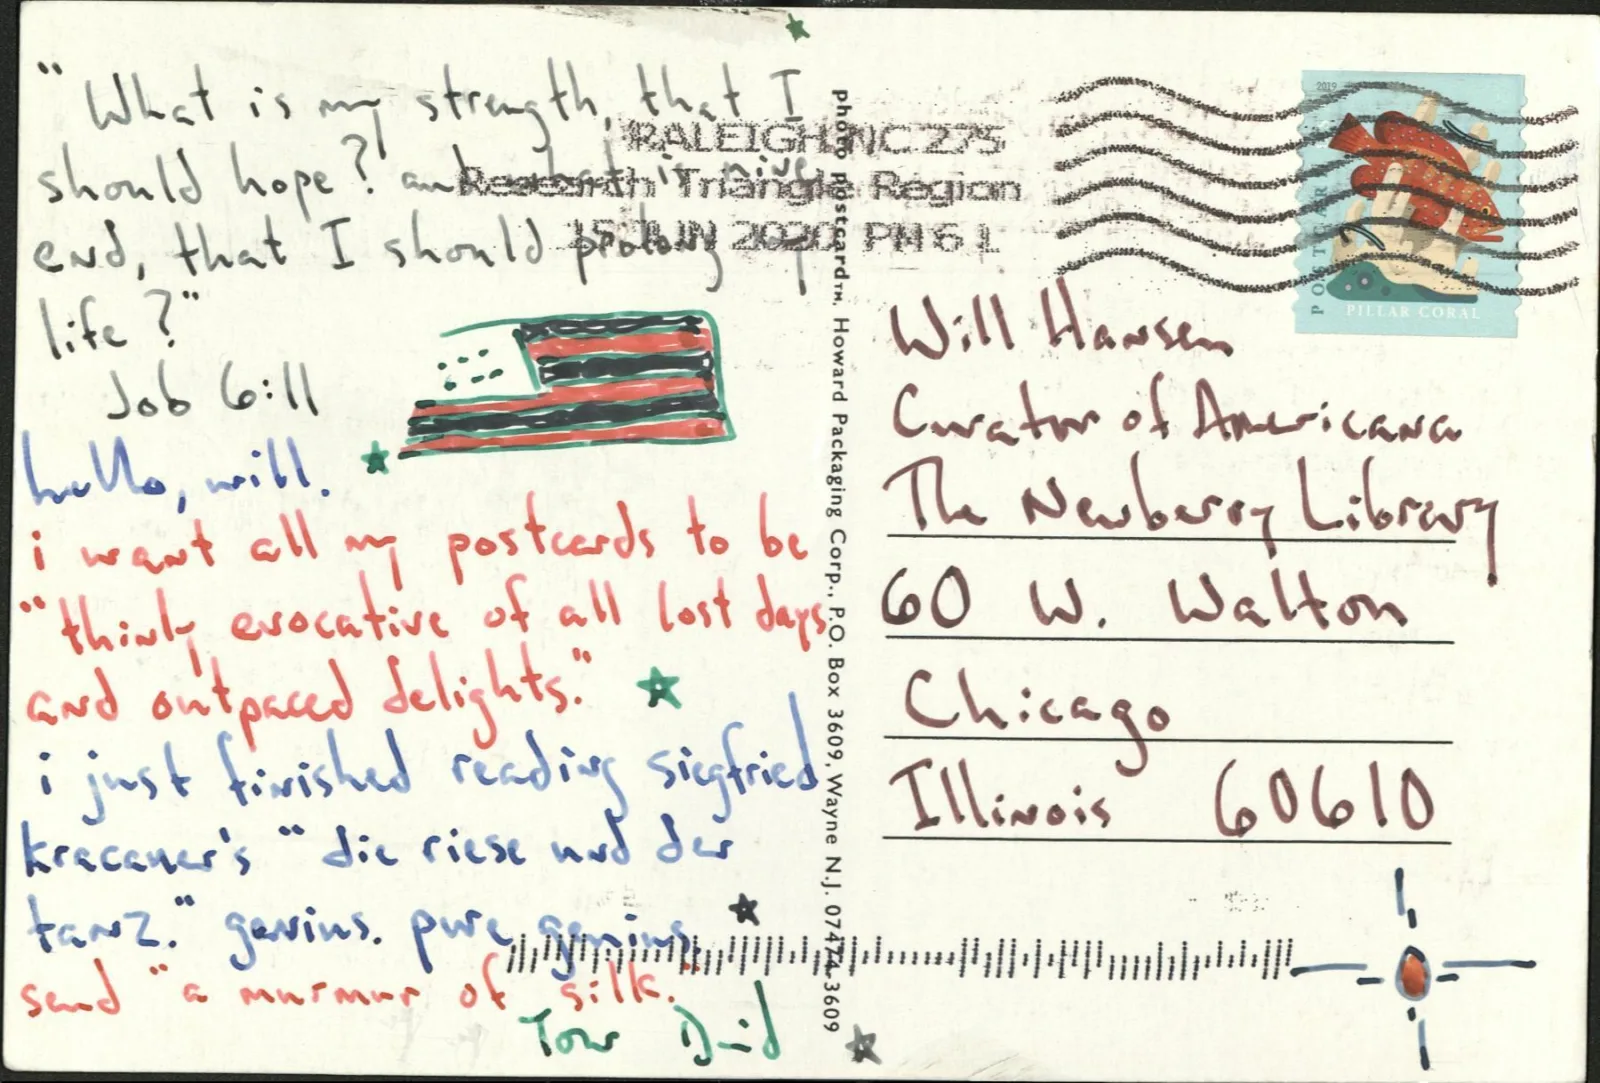 "What is my strength, that I
should hope? and what is mine
end, that I should prolong my
life?"
Job 6:11
hello, will.
i want all my postcards to be
"thinly evocative of all lost days
and outpaced delights."
i just finished reading siegfried
kracauer's "die riese und der
tanz." genius. pure genius.
send "a murmur of silk."
Your David
photo postcard™, Howard Packaging Corp., P.O. Box 3609, Wayne N.J. 07474-3609
RALEIGH NC 275
Research Triangle Region
15 JUN 2020 PM 6 L
2019
POSTCARD
PILLAR CORAL
Will Hansen
Curator of Americana
The Newberry Library
60 W. Walton
Chicago
Illinois 60610